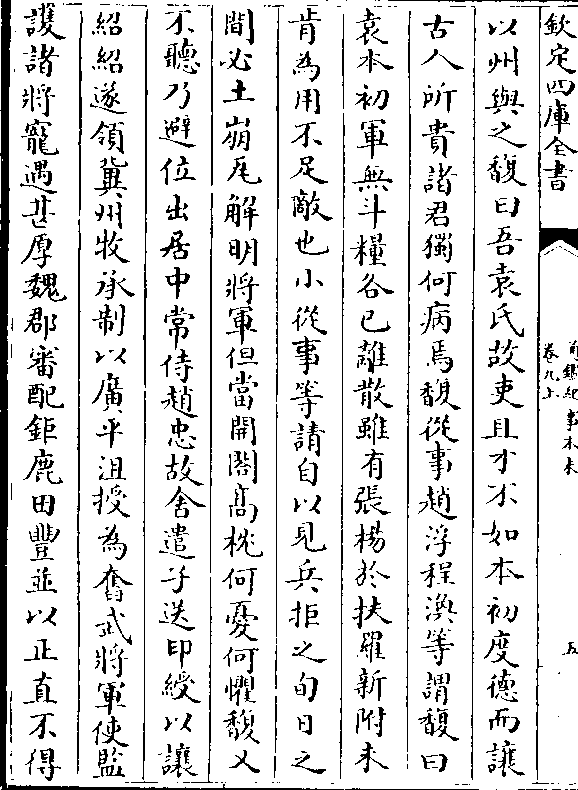 欽定四庫全書
通鑑紀事本末
卷九上
五
以州與之馥曰吾袁氏故吏且才不如本初度德而讓
古人所貴諸君獨何病焉馥從事趙浮程渙等謂馥曰
袁本初軍無斗糧各已離散雖有張楊於扶羅新附未
肯為用不足敵也小從事等請自以見兵拒之旬日之
間必土崩瓦解明將軍但當開閤髙枕何憂何懼馥又
不聽乃避位出居中常侍趙忠故舍遣子送印綬以讓
紹紹遂領冀州牧承制以廣平沮授為奮武將軍使監
護諸將寵遇甚厚魏郡審配鉅鹿田豐並以正直不得